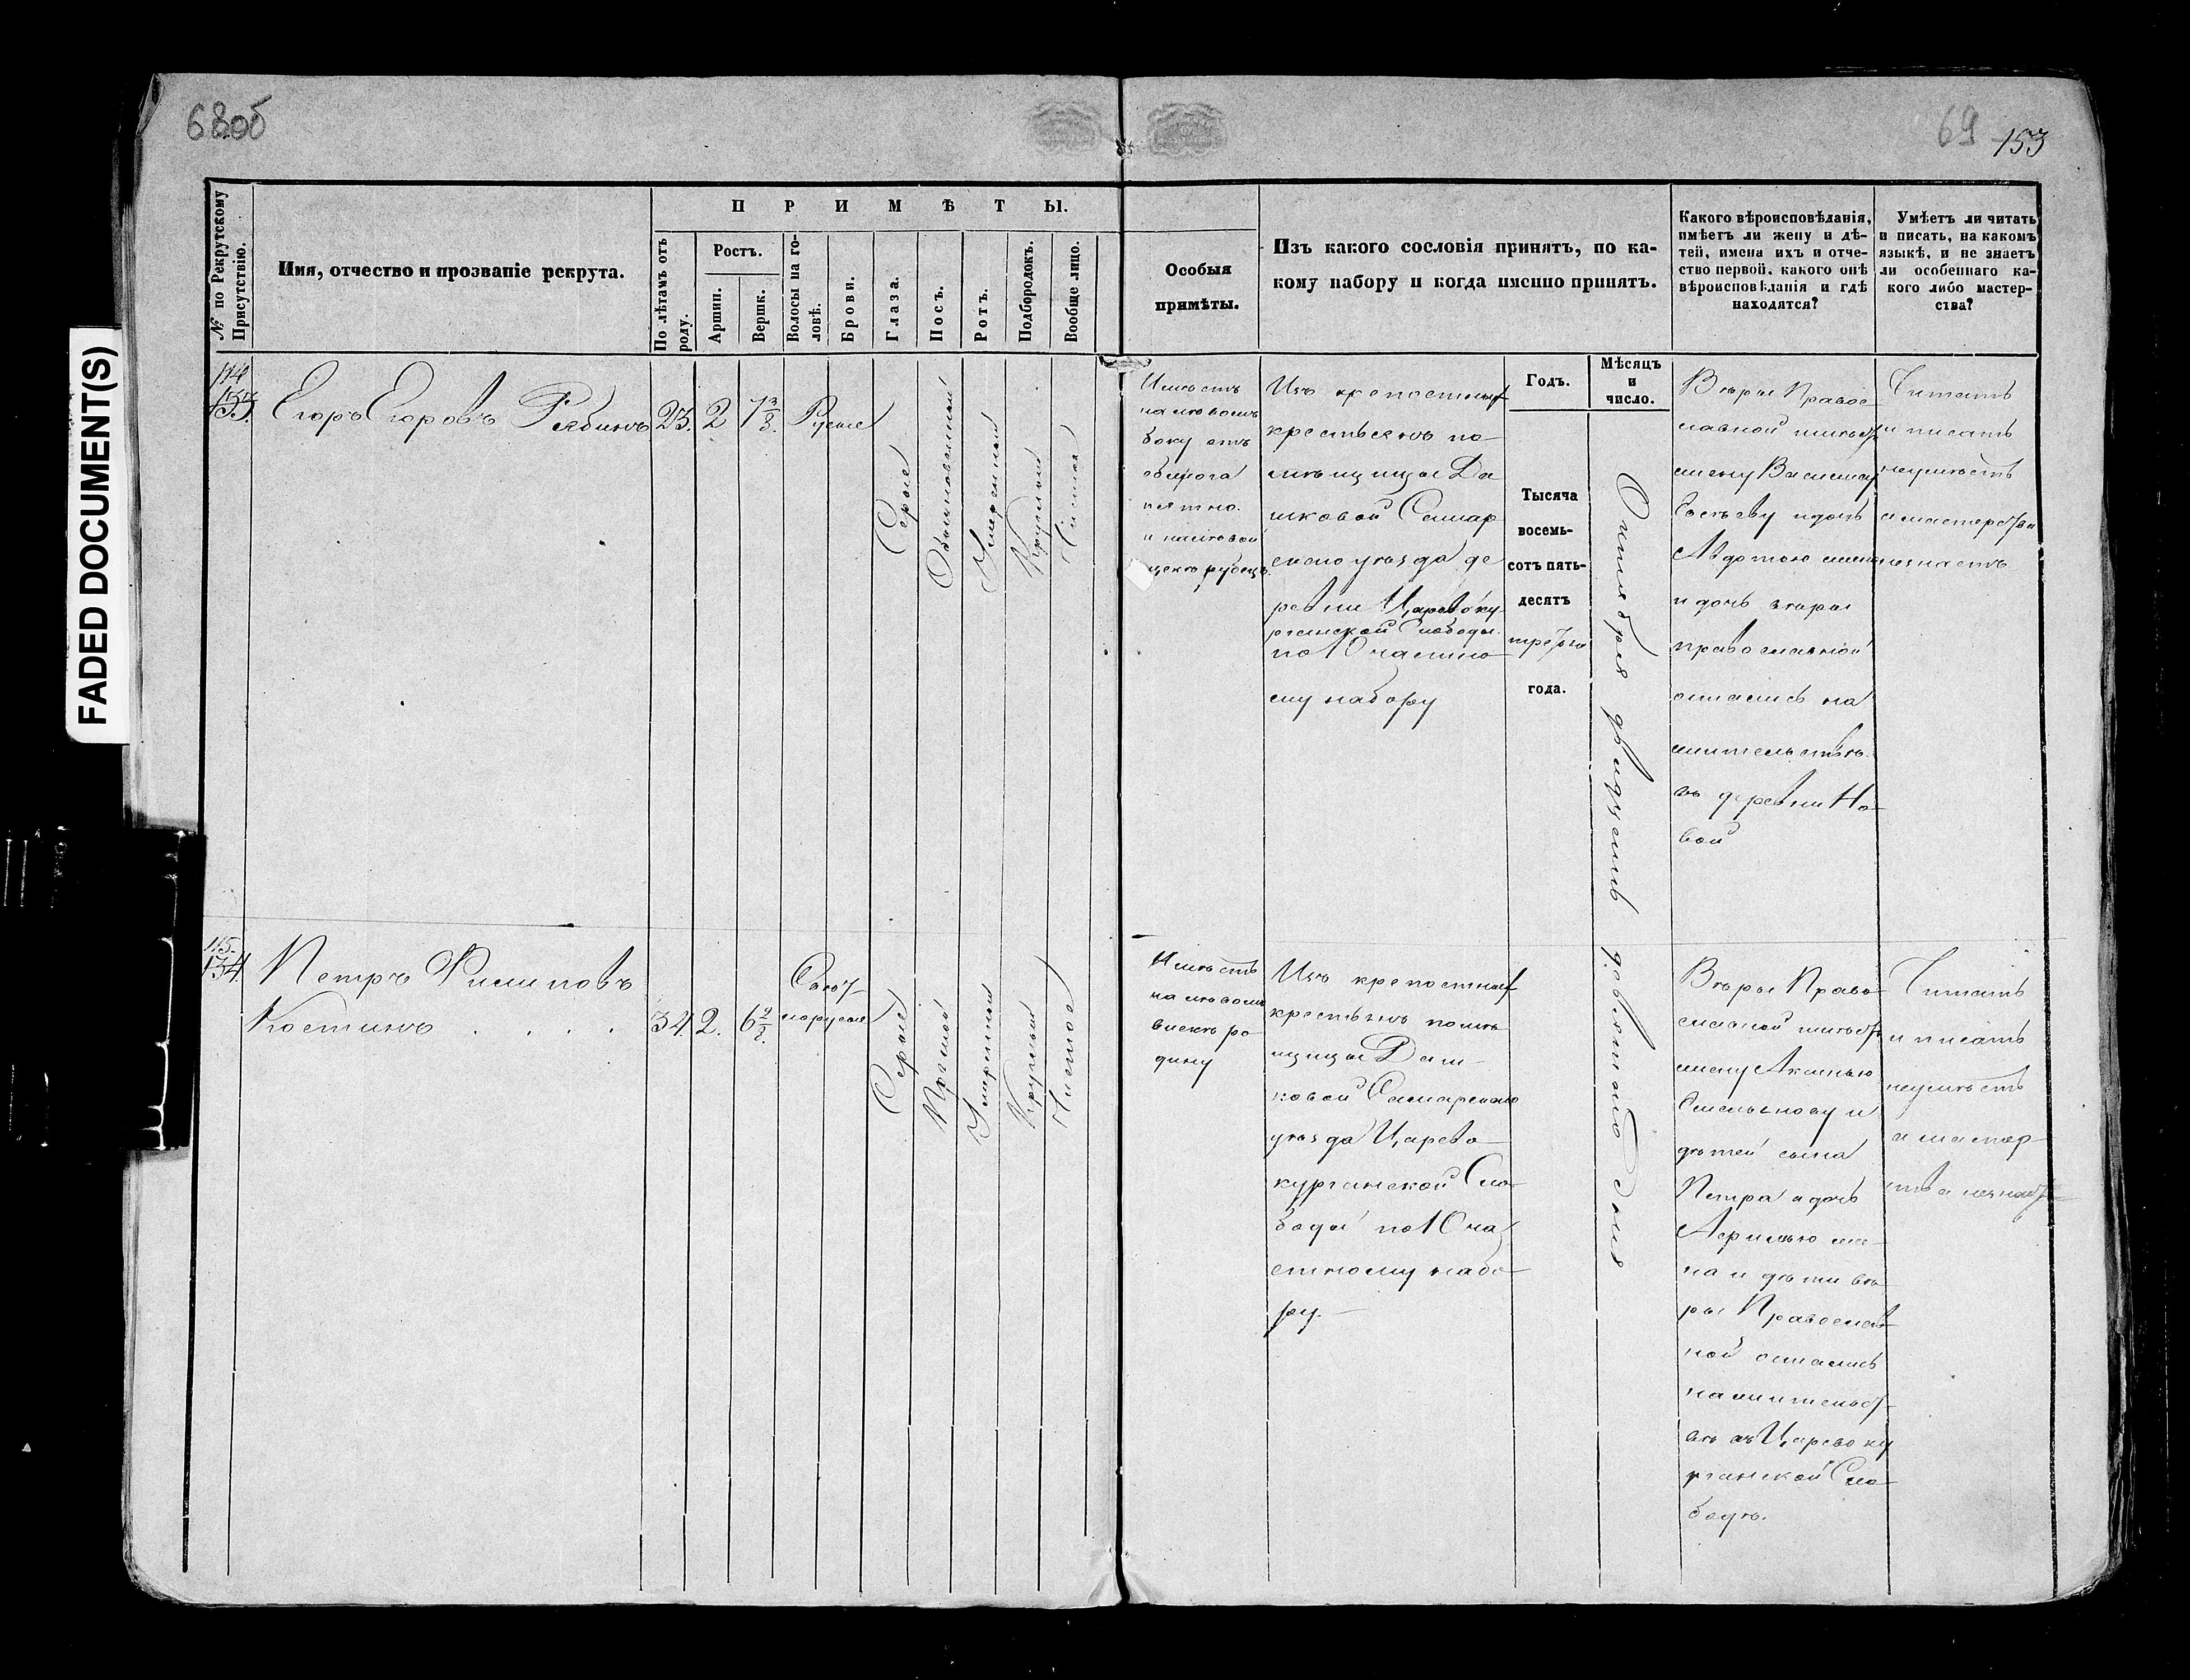 68об
69
153
FADED DOCUMENT(S)
№ по Рекрутскому
Присутствію.
Имя, отчество и прозваніе рекрута.
ПРИМѢТЫ.
По лѣтамъ отъ
роду.
Ростъ.
Аршин.
Вершк.
Волосы на го-
ловѣ.
Брови.
Глаза.
Носъ.
Ротъ.
Подбородокъ.
Вообще лицо.
Особыя
примѣты.
Изъ какого сословія принятъ, по ка-
кому набору и когда именно принятъ.
Какого вѣроисповѣданія,
имѣетъ ли жену и дѣ-
тей, имена ихъ и отче-
ство первой, какого онѣ
вѣроисповѣданія и гдѣ
находятся?
Умѣетъ ли читать
и писать, на какомъ
языкѣ, и не знаетъ
ли особеннаго ка-
кого либо мастер-
ства?
114
133.
Егоръ Егоровъ Рябинъ
23.
2
7 3/8.
Русые
Серые
Обыкновенный
Умеренный
Круглый
Чистое
Имѣетъ
на лѣвомъ
боку отъ
ожога
пятно.
рубецъ.
Изъ крепостных
крестьянъ по-
мѣщицы Да
шковой Самар
скаго уѣзда де
ревни Царевоку
рганской Слободы.
по 10 частно
му набору
Годъ.
Тысяча
восемь-
сотъ пять-
десятъ
третьяго
года.
Мѣсяцъ
и
число.
Октября двадцать девятаго дня
Вѣры Правос
лавной имѣет
жену Василису
и дочь
Авдотью жена
и дочь вѣры
православной
остались на
жительствѣ.
въ деревни Но-
вой
Читать
и писать
неумѣетъ
а мастерства
незнаетъ
115.
134.
Петръ Филиповъ
Костинъ . . . .
34.
2.
6 2/8.
Светлорусые
Серые
Прямой
Умеренный
Круглый
Чистое
Имѣетъ
на лѣвомъ
вискѣ ро
дину
Изъ крепостных
крестьянъ помѣ
щицы Даш-
ковой Самарскаго
уѣзда Царево-
курганской Сло-
боды по 10 ча
стному набо-
ру.
Вѣры Право-
славной имѣетъ
жену Аксинью
Емельянову и
дѣтей сына
Петра и дочь
Афимью же-
на и дѣти вѣ
ры Православ
ной остались
на жительст-
вѣ въ Царевоку
рганской Сло-
бодѣ.
Читать
и писать
неумѣетъ
а мастер-
ства незнаетъ